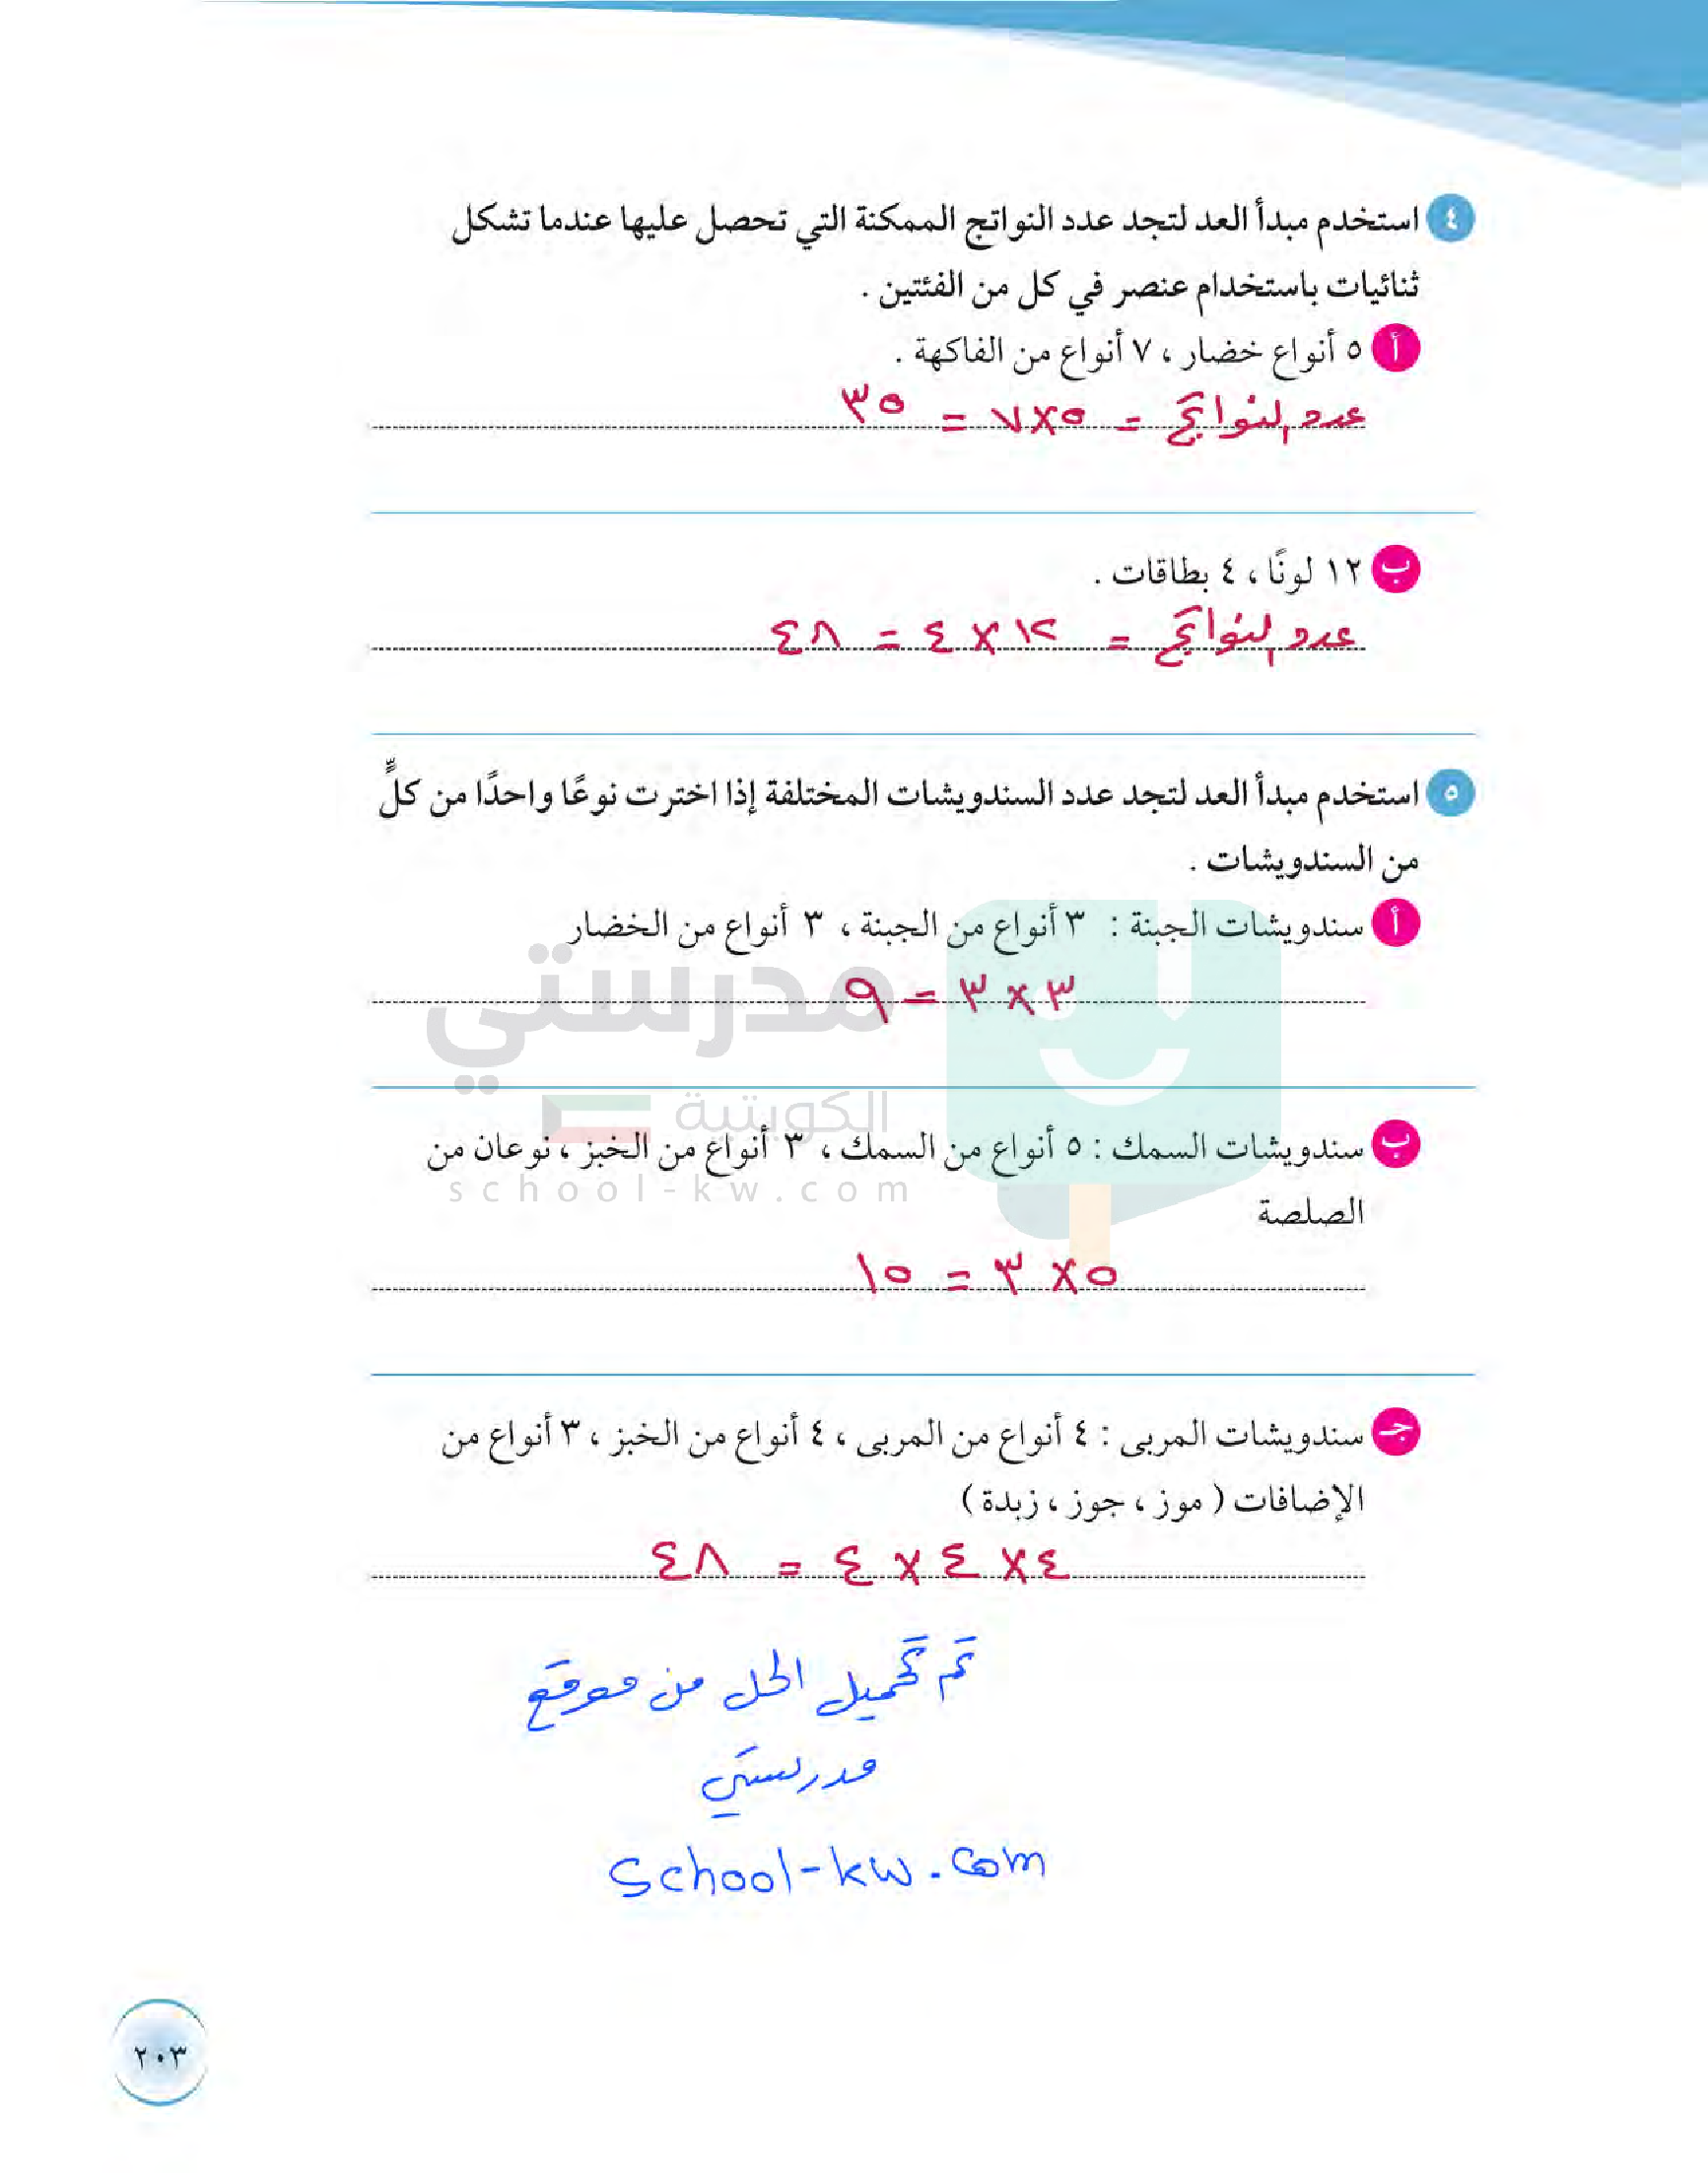 ٤ استخدم مبدأ العد لتجد عدد النواتج الممكنة التي تحصل عليها عندما تشكل
ثنائيات باستخدام عنصر في كل من الفئتين .
أ ٥ أنواع خضار ، ٧ أنواع من الفاكهة .
عدد النواتج = ٥ × ٧ = ٣٥
ب ١٢ لونًا ، ٤ بطاقات .
عدد النواتج = ١٢ × ٤ = ٤٨
٥ استخدم مبدأ العد لتجد عدد السندويشات المختلفة إذا اخترت نوعًا واحدًا من كلٍّ
من السندويشات .
أ سندويشات الجبنة : ٣ أنواع من الجبنة ، ٣ أنواع من الخضار
٣ × ٣ = ٩
مدرستي
الكويتية
ب سندويشات السمك : ٥ أنواع من السمك ، ٣ أنواع من الخبز ، نوعان من
school-kw.com
الصلصة
٥ × ٣ = ١٥
جـ سندويشات المربى : ٤ أنواع من المربى ، ٤ أنواع من الخبز ، ٣ أنواع من
الإضافات ( موز ، جوز ، زبدة )
٤ × ٤ × ٤ = ٤٨
تم تحميل الحل من موقع
مدرستي
school-kw.com
٢٠٣